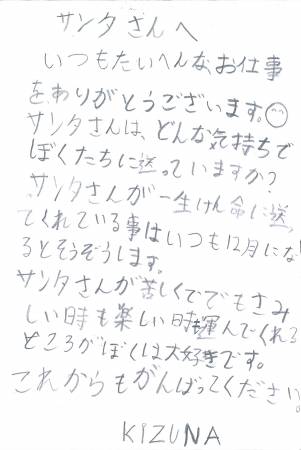 サンタさんへ
いつもたいへんな、お仕事
をありがとうございます。
サンタさんは、どんな気持ちで
ぼくたちに送っていますか?
サンタさんが一生けん命に送っ
てくれている事はいつも12月にな
るとそうぞうします。
サンタさんが苦しくででもさみ
しい時も楽しい時も運んでくれる
ところがぼくは大好きです。
これからもがんばってください。
KIZUNA